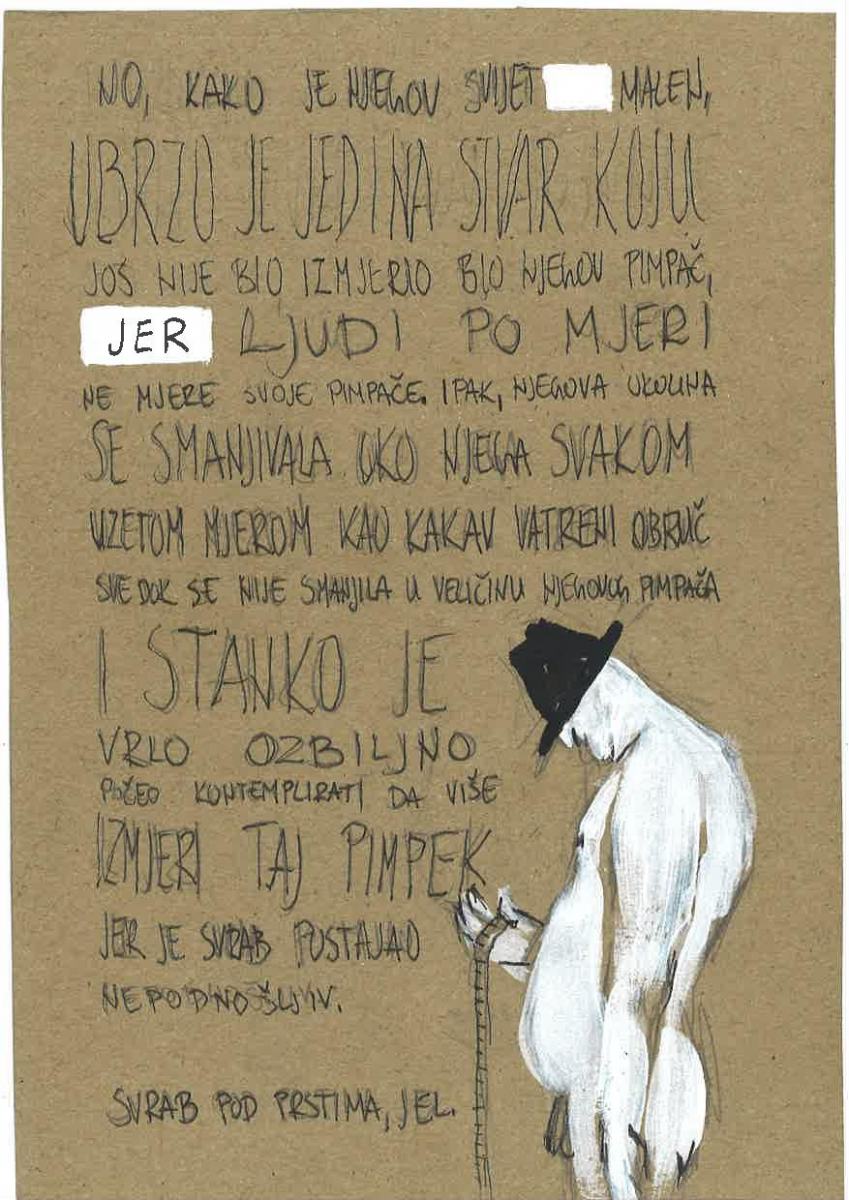 NO, KAKO JE NJEGOV SVIJET MALEN,
UBRZO JE JEDINA STVAR KOJU
JOŠ NIJE BIO IZMJERIO BIO NJEGOV PIMPAČ,
JER LJUDI PO MJERI
NE MJERE SVOJE PIMPAČE. IPAK, NJEGOVA OKOLINA
SE SMANJIVALA OKO NJEGA SVAKOM
UZETOM MJEROM KAO KAKAV VATRENI OBRUČ
SVE DOK SE NIJE SMANJILA U VELIČINU NJEGOVOG PIMPAČA
I STANKO JE
VRLO OZBILJNO
POČEO KONTEMPLIRATI DA VIŠE
IZMJERI TAJ PIMPEK
JER JE SVRAB POSTAJAO
NEPODNOŠLJIV.
SVRAB POD PRSTIMA, JEL.